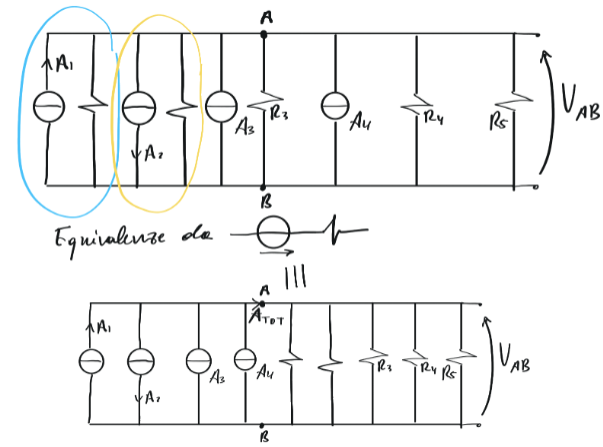 A
A1
A2
A3
R3
A4
R4
R5
VAB
B
Equivalenze da
A
ATOT
A1
A2
A3
A4
R3
R4
R5
VAB
B